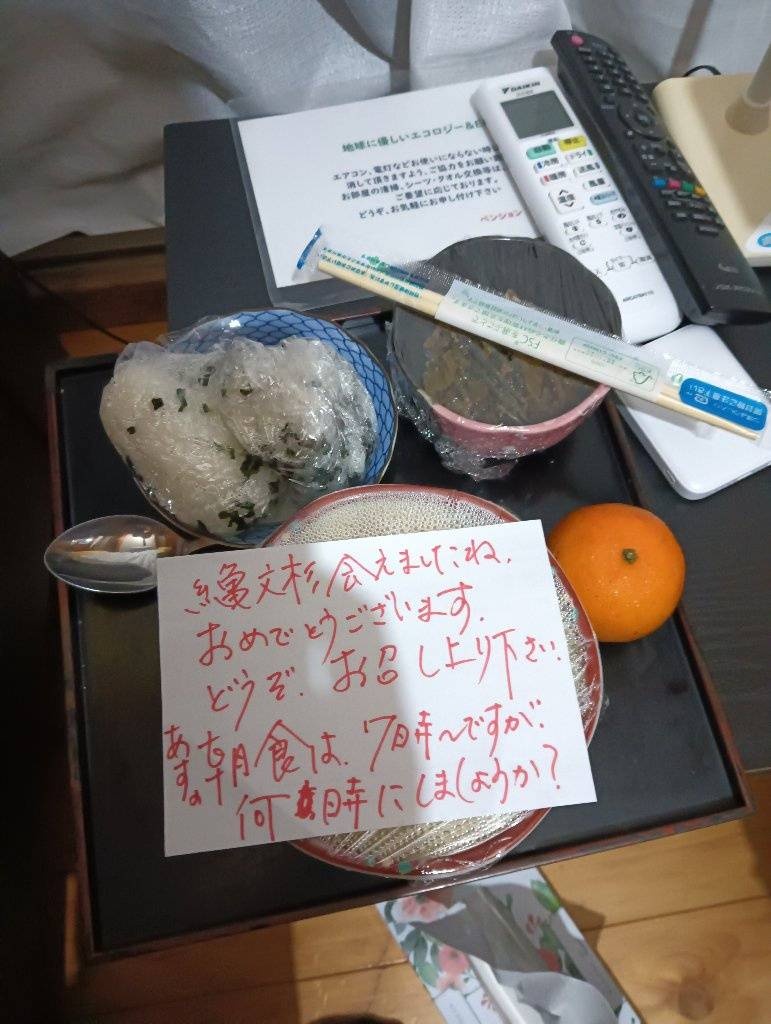 地球に優しいエコロジー&
エアコン、電灯などお使いにならない時
消して頂きますよう、ご協力をお願い
お部屋の清掃、シーツ・タオル交換等は
ご要望に応じております。
どうぞ、お気軽にお申し付け下さい
ペンション
DAIKIN
自動
停止
冷房
ドライ
暖房
送風
温度
風量
FSC
縄文杉会えましたね、
おめでとうございます。
どうぞ、お召し上り下さい。
あすの朝食は、7時〜ですが、
何時にしましょうか?